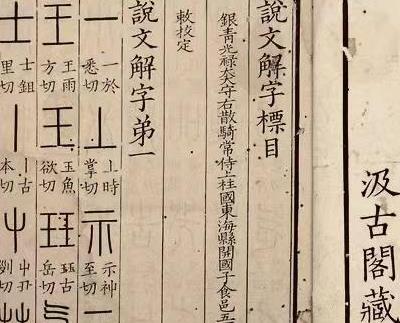 汲古閣藏
說文解字標目
銀青光祿大夫守右散騎常侍上柱國東海縣開國子食邑五
敕校定
說文解字弟一
一 一於悉切 丄 上時掌切 示 示神至切
王 王雨方切 玉 玉魚欲切 玨 玨古岳切 气
士 士鉏里切 丨 丨古本切 屮 屮丑列切 艸